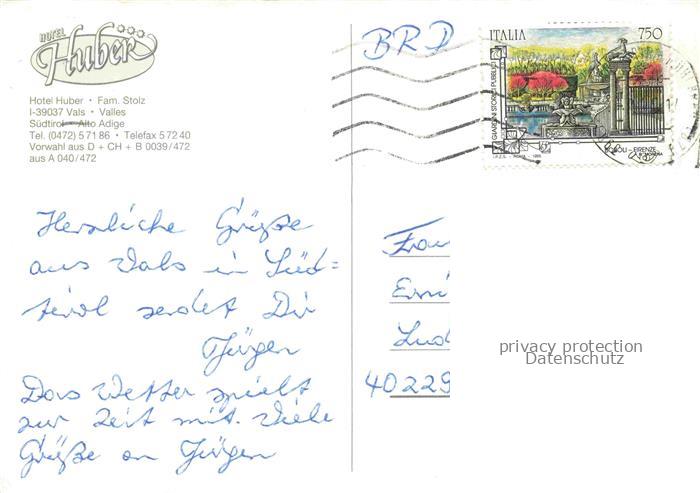 HOTEL
Huber
Hotel Huber • Fam. Stolz
I-39037 Vals • Valles
Südtirol – Alto Adige
Tel. (0472) 5 71 86 • Telefax 5 72 40
Vorwahl aus D + CH + B 0039/472
aus A 040/472
BRD
ITALIA 750
GIARDINI STORICI PUBBLICI
I.P.Z.S. - ROMA - 1995
BOBOLI - FIRENZE
Herzliche Grüße
aus Vals in Süd=
tirol sendet Dir
Jürgen
Das Wetter spielt
zur Zeit mit. Viele
Grüße an Jürgen
Frau
Emi
Lud
40229
privacy protection
Datenschutz